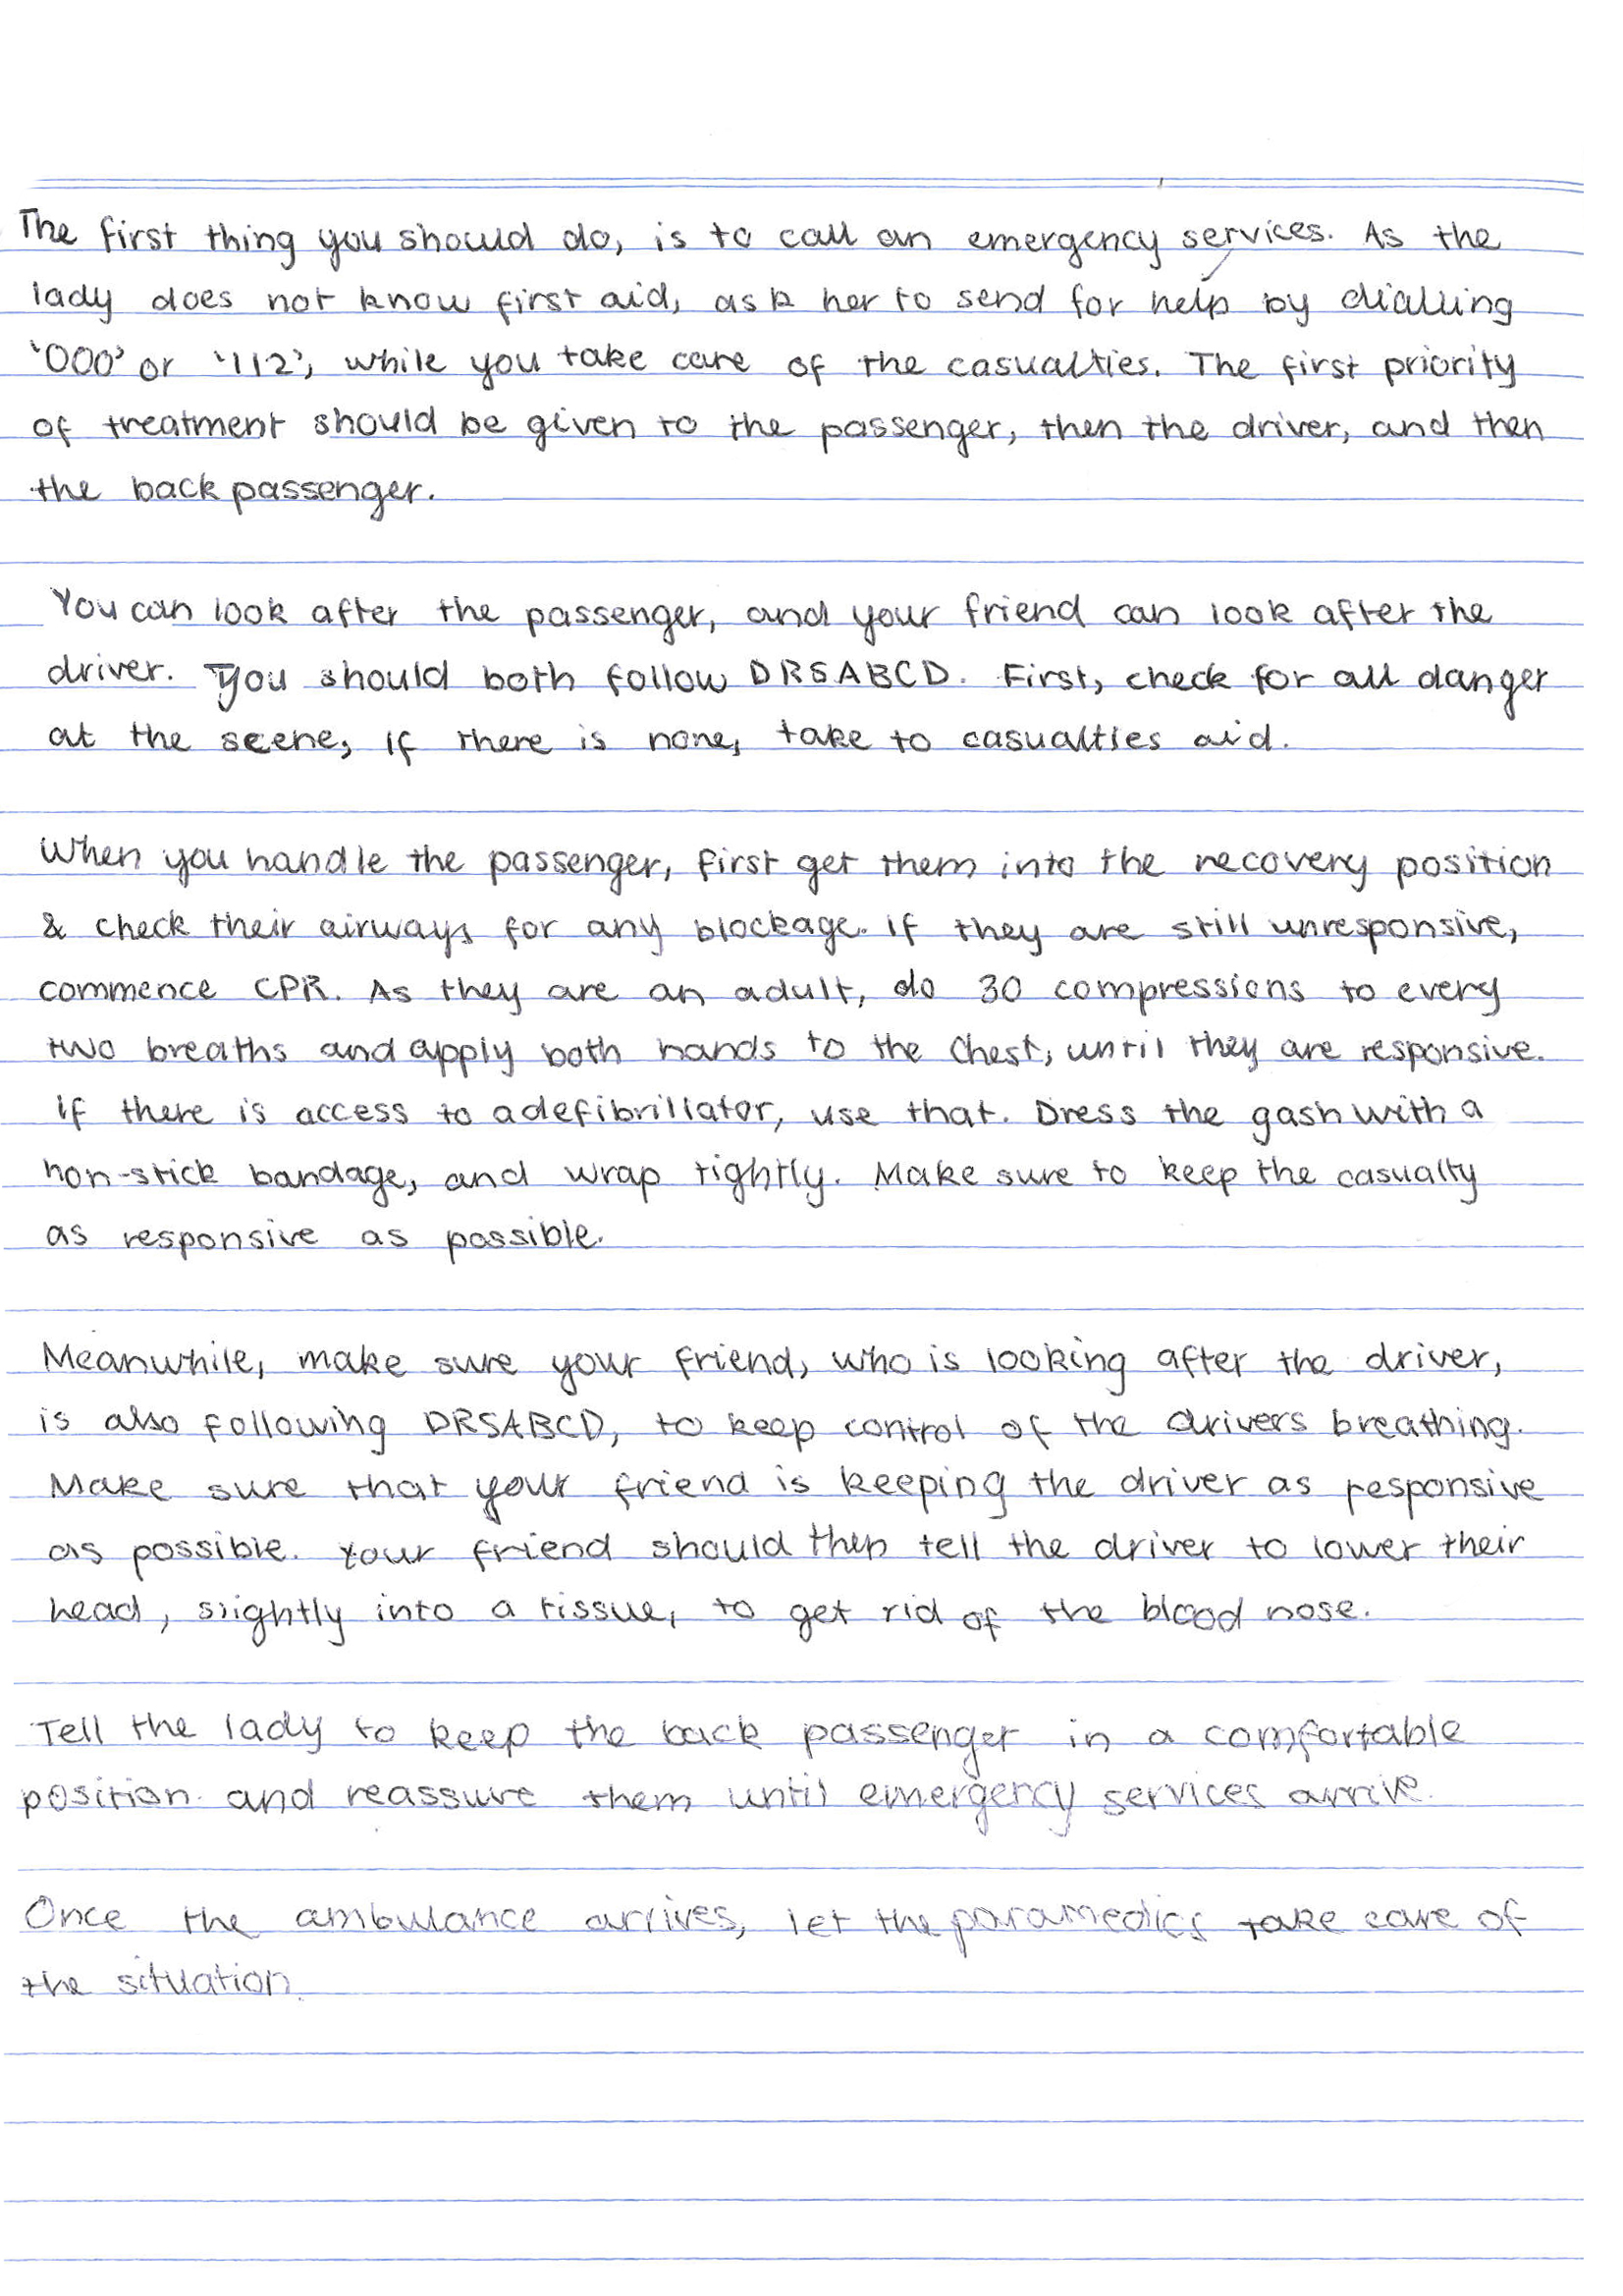 The first thing you should do, is to call an emergency services. As the
lady does not know first aid, ask her to send for help by dialling
'000' or '112', while you take care of the casualties. The first priority
of treatment should be given to the passenger, then the driver, and then
the back passenger.
You can look after the passenger, and your friend can look after the
driver. You should both follow DRSABCD. First, check for all danger
at the scene, if there is none, take to casualties aid.
When you handle the passenger, first get them into the recovery position
& check their airways for any blockage. If they are still unresponsive,
commence CPR. As they are an adult, do 30 compressions to every
two breaths and apply both hands to the chest, until they are responsive.
If there is access to a defibrillator, use that. Dress the gash with a
non-stick bandage, and wrap tightly. Make sure to keep the casualty
as responsive as possible.
Meanwhile, make sure your friend, who is looking after the driver,
is also following DRSABCD, to keep control of the drivers breathing.
Make sure that your friend is keeping the driver as responsive
as possible. Your friend should then tell the driver to lower their
head, slightly into a tissue, to get rid of the blood nose.
Tell the lady to keep the back passenger in a comfortable
position and reassure them until emergency services arrive.
Once the ambulance arrives, let the paramedics take care of
the situation.